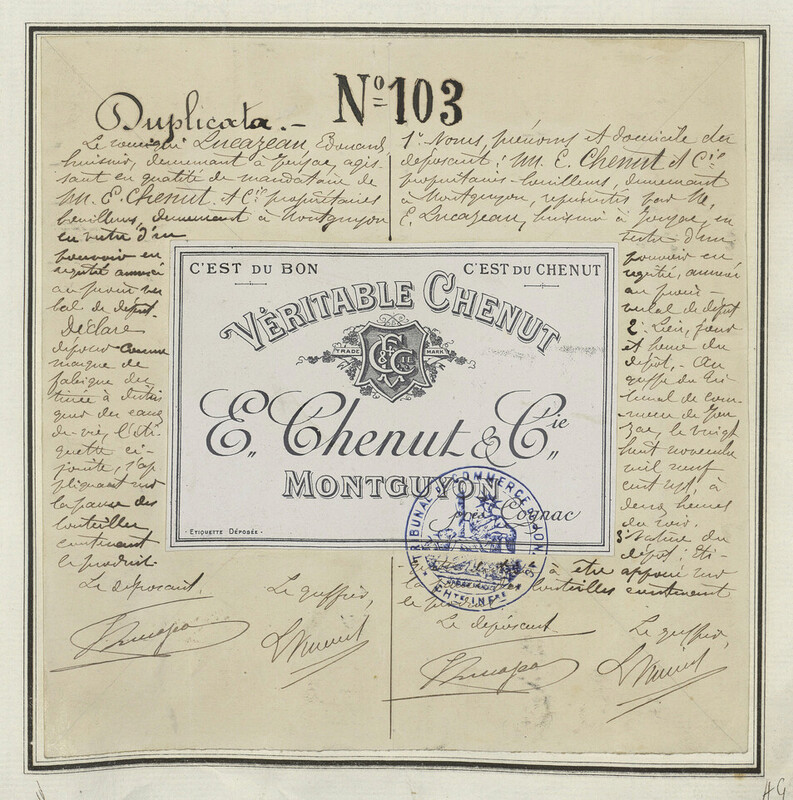 Nº 103
Duplicata.-
Le soussigné Lucazeau, Edouard
huissier, demeurant à Jonzac, agis-
sant en qualité de mandataire de
MM. E. Chenut et Cie propriétaires
bouilleurs, demeurant à Montguyon
en vertu d'un
pouvoir en-
registré annexé
au procès ver
bal de dépôt.
Déclare
déposer comme
marque de
fabrique des-
tinée à distin
guer des eaux
de-vie, l'éti-
quette ci-
jointe, s'ap
pliquant sur
la panse des
bouteilles
contenant
le produit.
Le déposant.
Le greffier,
1º Noms, prénoms et domicile du
déposant: MM. E. Chenut et Cie
propriétaires-bouilleurs, demeurant
à Montguyon, représentés par Me
E. Lucazeau, huissier à Jonzac, en
vertu d'un
pouvoir en-
registré, annexé
au procès-
verbal de dépôt
2º Lieu, jour
et heure du
dépôt.- Au
greffe du Tri
bunal de com-
merce de Jon
zac, le vingt
huit novembre
mil neuf
cent sept, à
deux heures
du soir.
3º Nature du
dépôt: Eti-
à être apposée sur
la bouteilles contenant
le
Le déposant
Le greffier,
C'EST DU BON
C'EST DU CHENUT
VÉRITABLE CHENUT
TRADE MARK
E. Chenut & Cie
MONTGUYON
près Cognac
Etiquette Déposée
TRIBUNAL COMMERCE JONZAC
AG